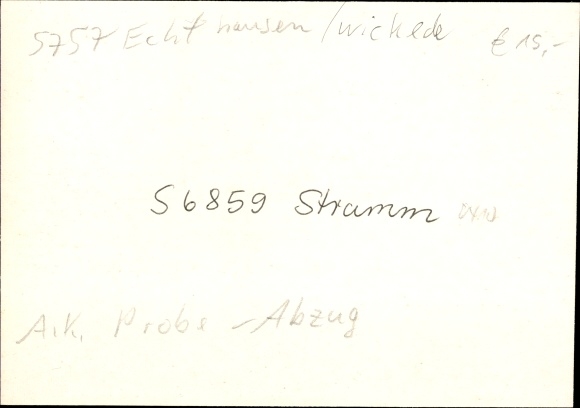 5757 Echthausen/Wickede € 15,-
S6859 Stramm
A.K. Probe-Abzug